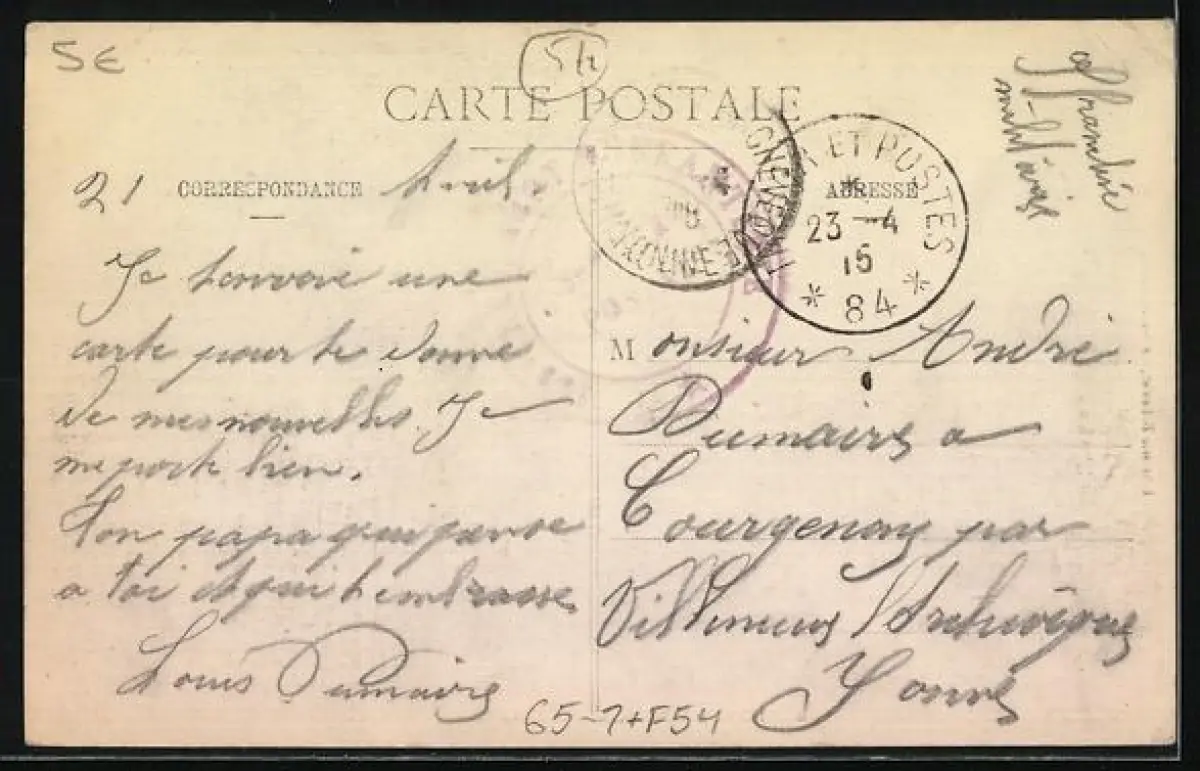 5€
5h
CARTE POSTALE
affranchie
militaire
21 Avril.
CORRESPONDANCE
ADRESSE
ET POSTES
23 - 4
15
* 84 *
Je t'envoie une
carte pour te donné
de mes nouvelles. Je
me porte bien.
Ton papa qui panse
a toi et qui t'embrasse
Louis Dumaire
Monsieur André
Dumaire a
Courgenay par
Villeneuve l'Archevêque
Yonne
65-7+F54